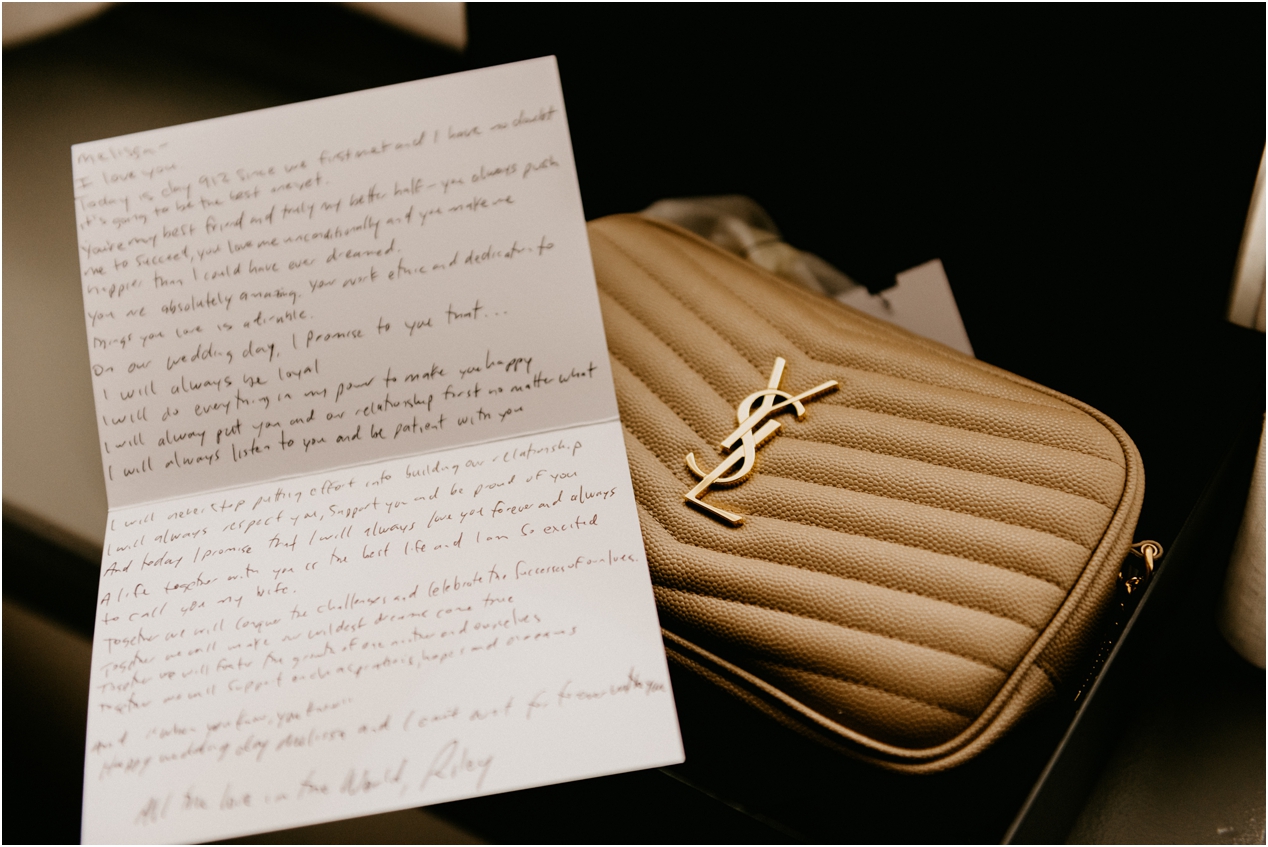 Melissa-
I love you
Today is day 912 since we first met and I have no doubt
it's going to be the best one yet.
You're my best friend and truly my better half - you always push
me to succeed, you love me unconditionally and you make me
happier than I could have ever dreamed.
You are absolutely amazing. Your work ethic and dedication to
things you love is admirable.
On our wedding day, I promise to you that...
I will always be loyal
I will do everything in my power to make you happy
I will always put you and our relationship first no matter what
I will always listen to you and be patient with you
I will never stop putting effort into building our relationship
I will always respect you, support you and be proud of you
And today I promise that I will always love you forever and always
A life together with you is the best life and I am so excited
to call you my wife.
Together we will conquer the challenges and celebrate the successes of our lives.
Together we will make our wildest dreams come true
Together we will foster the growth of one another and ourselves
Together we will support each aspirations, hopes and dreams
And "when you know, you know"
Happy wedding day Melissa and I can't wait for forever with you
All the love in the World, Riley
YSL